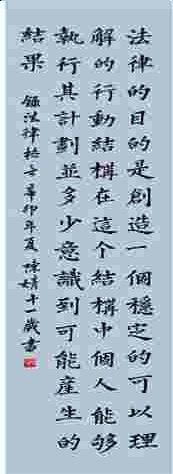 法律的目的是創造一個穩定的可以理
解的行動結構在這个結構中個人能够
執行其計劃並多少意識到可能產生的
結果
錄法律格言辛卯年夏陳婧十一歲書